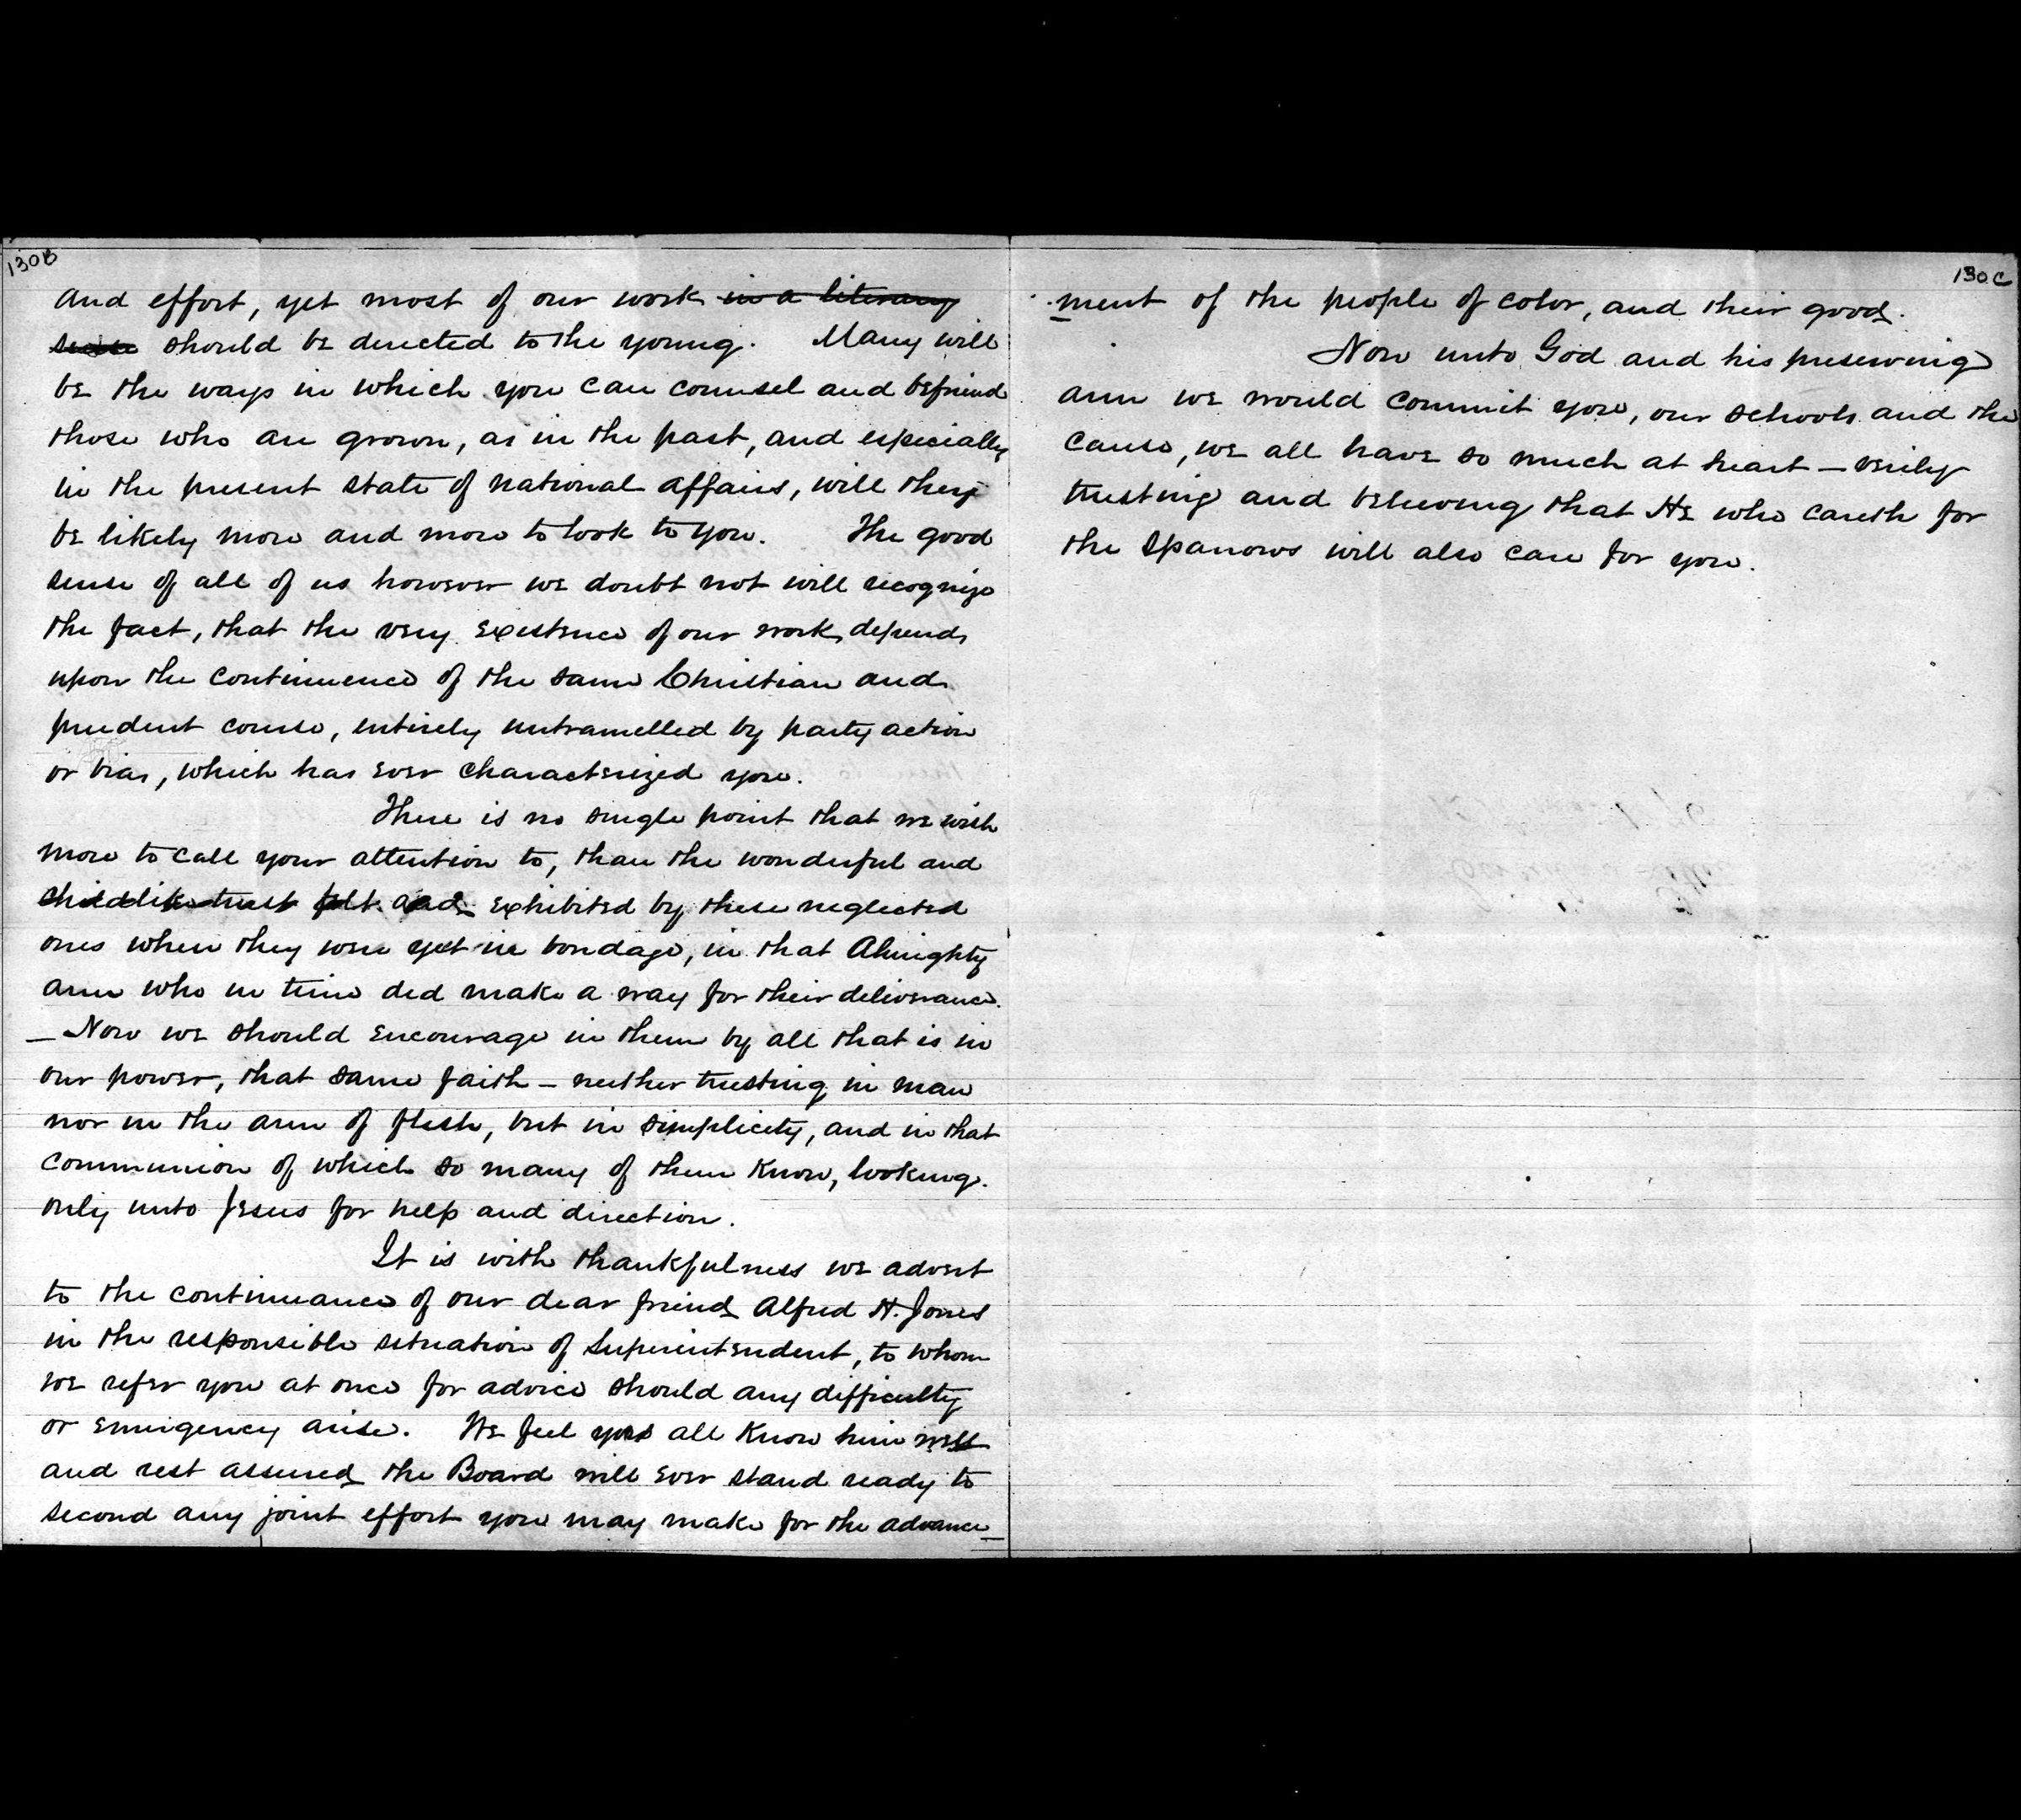 130B
and effort, yet most of our work in a literary
sense should be directed to the young. Many will
be the ways in which you can counsel and befriend
those who are grown, as in the past, and especially
in the present state of national affairs, will they
be likely more and more to look to you. The good
sense of all of us however we doubt not will recognize
the fact, that the very existence of our work depends
upon the continuence of the same Christian and
prudent course, entirely untramelled by party action
or bias, which has ever characterized you.
There is no single point that we wish
more to call your attention to, than the wonderful and
childlike trust felt and exhibited by these neglected
ones when they were yet in bondage, in that Almighty
arm who in time did make a way for their deliverance.
— Now we should encourage in them by all that is in
our power, that same faith — neither trusting in man
nor in the arm of flesh, but in simplicity, and in that
communion of which so many of them know, looking
only unto Jesus for help and direction.
It is with thankfulness we advert
to the continuance of our dear friend Alfred H. Jones
in the responsible situation of Superintendent, to whom
we refer you at once for advice should any difficulty
or emergency arise. We feel you all know him well
and rest assured the Board will ever stand ready to
second any joint effort you may make for the advance
130C
ment of the people of color, and their good.
Now unto God and his preserving
arm we would commit you, our schools and the
cause, we all have so much at heart — verily
trusting and believing that He who careth for
the sparrows will also care for you.